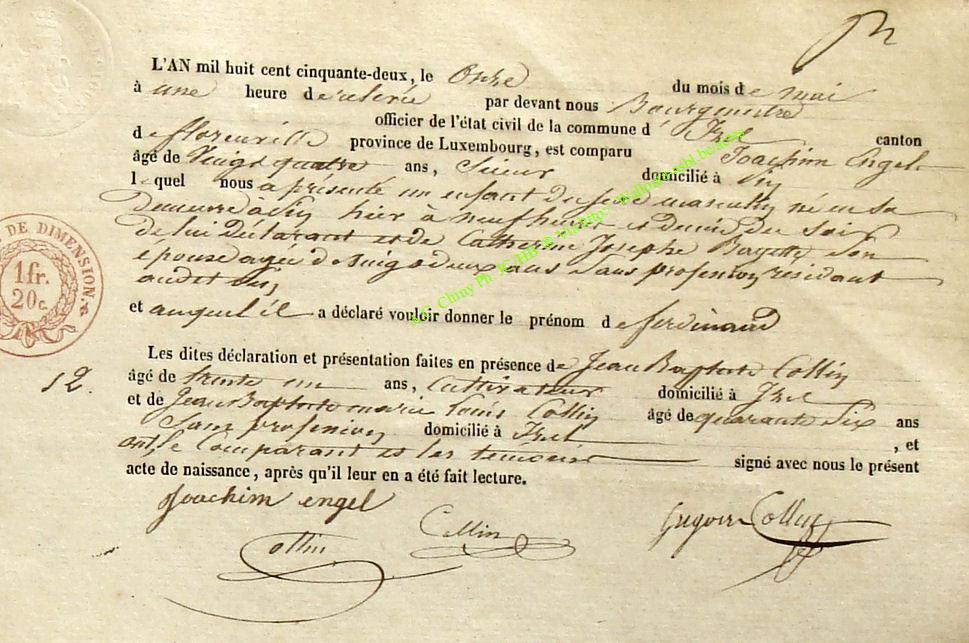 L'AN mil huit cent cinquante-deux, le Onze du mois de mai
à une heure de relevée par devant nous Bourgmestre
officier de l'état civil de la commune d'Izel canton
de florenville province de Luxembourg, est comparu Joachim Engel
âgé de Vingt quatre ans, Scieur domicilié à Pin
lequel nous a présenté un enfant du sexe masculin né en sa
demeure à Pin hier à neuf heures et demie du soir
de lui Déclarant et de Catherine Josephe son
épouse agée de Vingt deux ans Sans profession residant
audit Pin
et auquel il a déclaré vouloir donner le prénom de ferdinand
Les dites déclaration et présentation faites en présence de Jean Baptiste Collin
12.
âgé de trente un ans, Cultivateur domicilié à Izel
et de Jean Baptiste marie Louis Collin âgé de quarante Six ans
Sans profession domicilié à Izel, et
ont, le Comparant et les temoins signé avec nous le présent
acte de naissance, après qu'il leur en a été fait lecture.
Joachim engel
Collin
Collin
Gregoire Collin
DE DIMENSION.
1 fr.
20 c.